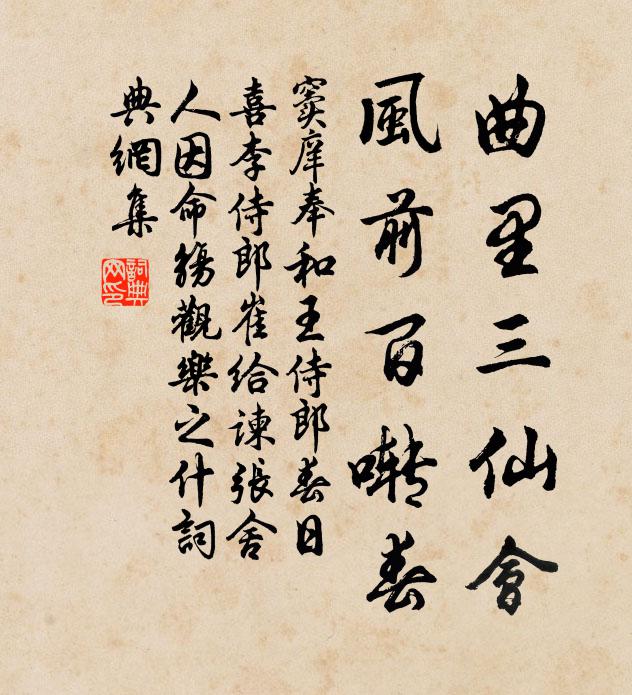 曲里三仙會
風前百囀春
竇庠奉和王侍郎春日
喜李侍郎崔給諫張舍
人因命觴觀樂之什詞
典網集
詞典網印